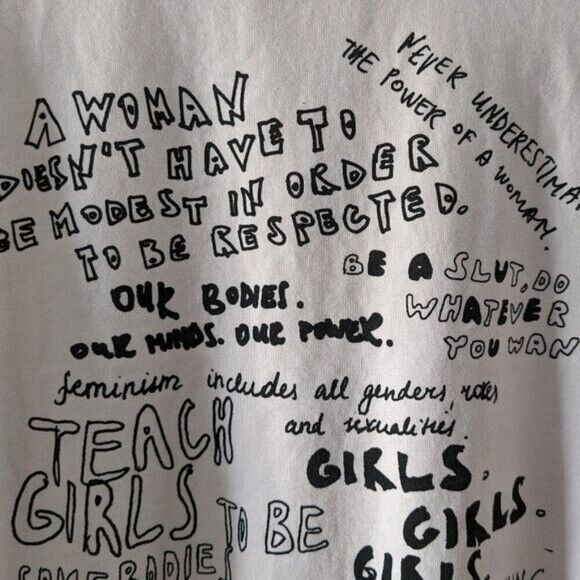 A WOMAN
DOESN'T HAVE TO
BE MODEST IN ORDER
TO BE RESPECTED.
NEVER UNDERESTIMA
THE POWER OF A WOMAN.
BE A SLUT, DO
WHATEVER
YOU WAN
OUR BODIES.
OUR MINDS. OUR POWER.
feminism includes all genders, roles
and sexualities.
TEACH
GIRLS
TO BE
SOMEBODIES
GIRLS.
GIRLS.
GIRLS